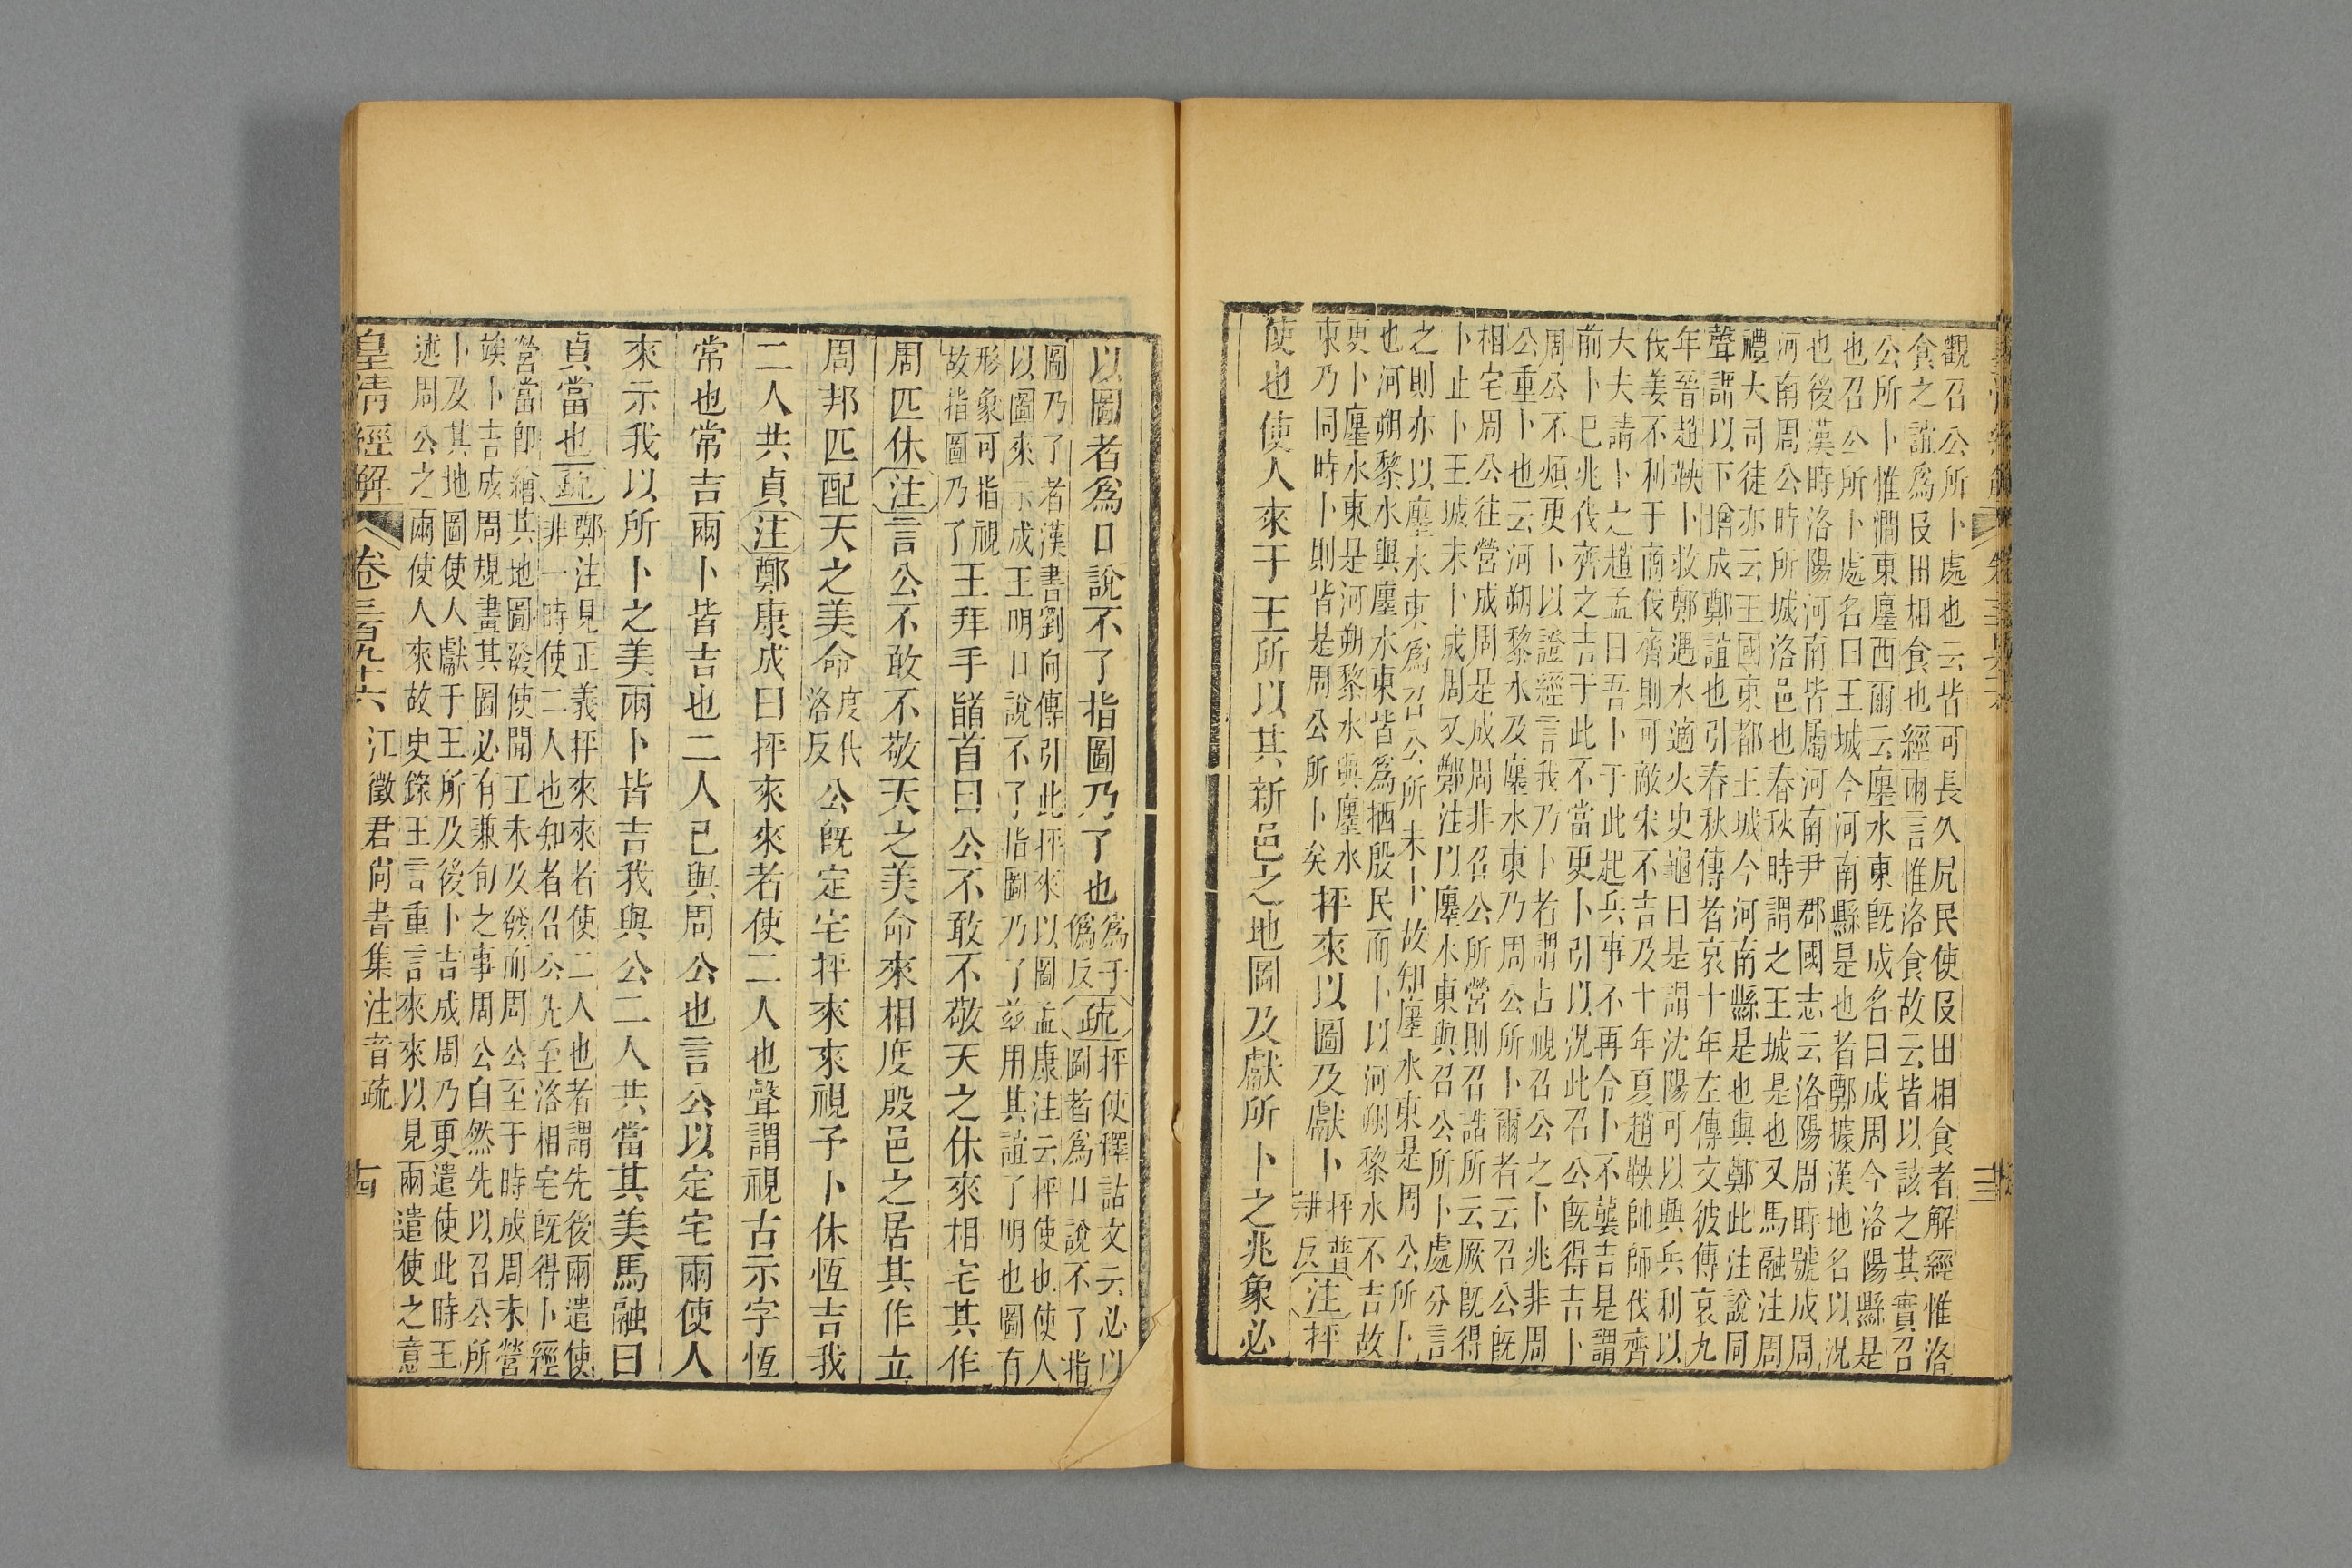 觀召公所卜處也云皆可長久凥民使叚田相食者解經惟洛
食之誼爲叚田相食也經兩言惟洛食故云皆以該之其實召
公所卜惟澗東瀍西爾云瀍水東旣成名曰成周今洛陽縣是
也召公所卜處名曰王城今河南縣是也者鄭據漢地名以況
也後漢時洛陽河南皆屬河南尹郡國志云洛陽周時號成周
河南周公時所城洛邑也春秋時謂之王城是也又馬融注周
禮大司徒亦云王國東都王城今河南縣是也與鄭此注說同
聲謂以下增成鄭誼也引春秋傳者哀十年左傳文彼傳哀九
年晉趙鞅卜救鄭遇水適火史龜曰是謂沈陽可以興兵利以
伐姜不利于商伐齊則可敵宋不吉及十年夏趙鞅帥師伐齊
大夫請卜之趙孟曰吾卜于此起兵事不再令卜不襲吉是謂
前卜巳兆伐齊之吉于此不當更卜引以況此召公旣得吉卜
周公不煩更卜以證經言我乃卜者謂占視召公之卜兆非周
公重卜也云河朔黎水及瀍水東乃周公所卜爾者云召公旣
相宅周公往營成周是成周非召公所營則召誥所云厥旣得
卜止卜王城未卜成周又鄭注以瀍水東與召公所卜處分言
之則亦以瀍水東爲召公所未卜故知瀍水東是周公所卜
也河朔黎水與瀍水東皆爲栖殷民而卜以河朔黎水不吉故
更卜瀍水東是河朔黎水與瀍水
東乃同時卜則皆是周公所卜矣
抨來以圖及獻卜
抨普
耕反
注抨
使也使人來于王所以其新邑之地圖及獻所卜之兆象必
皇清經解
十三
以圖者爲口說不了指圖乃了也
爲于
僞反
疏
抨使釋詁文云必以
圖者爲口說不了指
圖乃了者漢書劉向傳引此抨來以圖孟康注云抨使也使人
以圖來示成王明口說不了指圖乃了兹用其誼了明也圖有
形象可指視
故指圖乃了
王拜手䭫首曰公不敢不敬天之休來相宅其作
周匹休注言公不敢不敬天之美命來相度殷邑之居其作立
周邦匹配天之美命
度代
洛反
公旣定宅抨來來視予卜休恆吉我
二人共貞注鄭康成曰抨來來者使二人也聲謂視古示字恆
常也常吉兩卜皆吉也二人己與周公也言公以定宅兩使人
來示我以所卜之美兩卜皆吉我與公二人共當其美馬融曰
貞當也疏
鄭注見正義抨來來者使二人也者謂先後兩遣使
非一時使二人也知者召公先至洛相宅旣得卜經
營當卽繪其地圖發使聞王未及發而周公至于時成周未營
竢卜吉成周規畫其圖必有兼旬之事周公自然先以召公所
卜及其地圖使人獻于王所及後卜吉成周乃更遣使此時王
述周公之兩使人來故史錄王言重言來來以見兩遣使之意
皇清經解
卷三百九十六
江徵君尚書集注音疏
十四